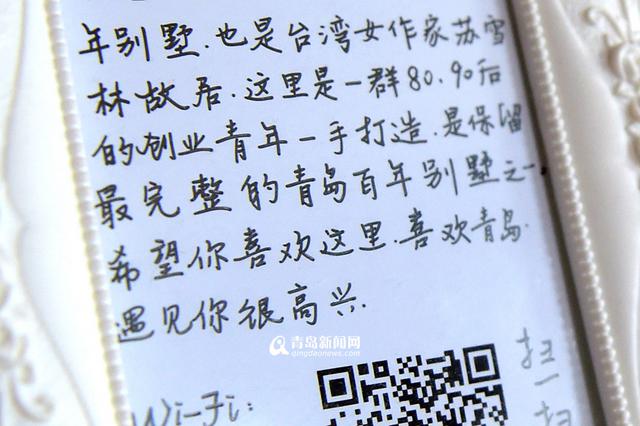 年别墅.也是台湾女作家苏雪
林故居.这里是一群80.90后
的创业青年一手打造.是保留
最完整的青岛百年别墅之一.
希望你喜欢这里.喜欢青岛.
遇见你很高兴.
青岛新闻网
qingdaonews.com
扫一扫
Wi-Fi: